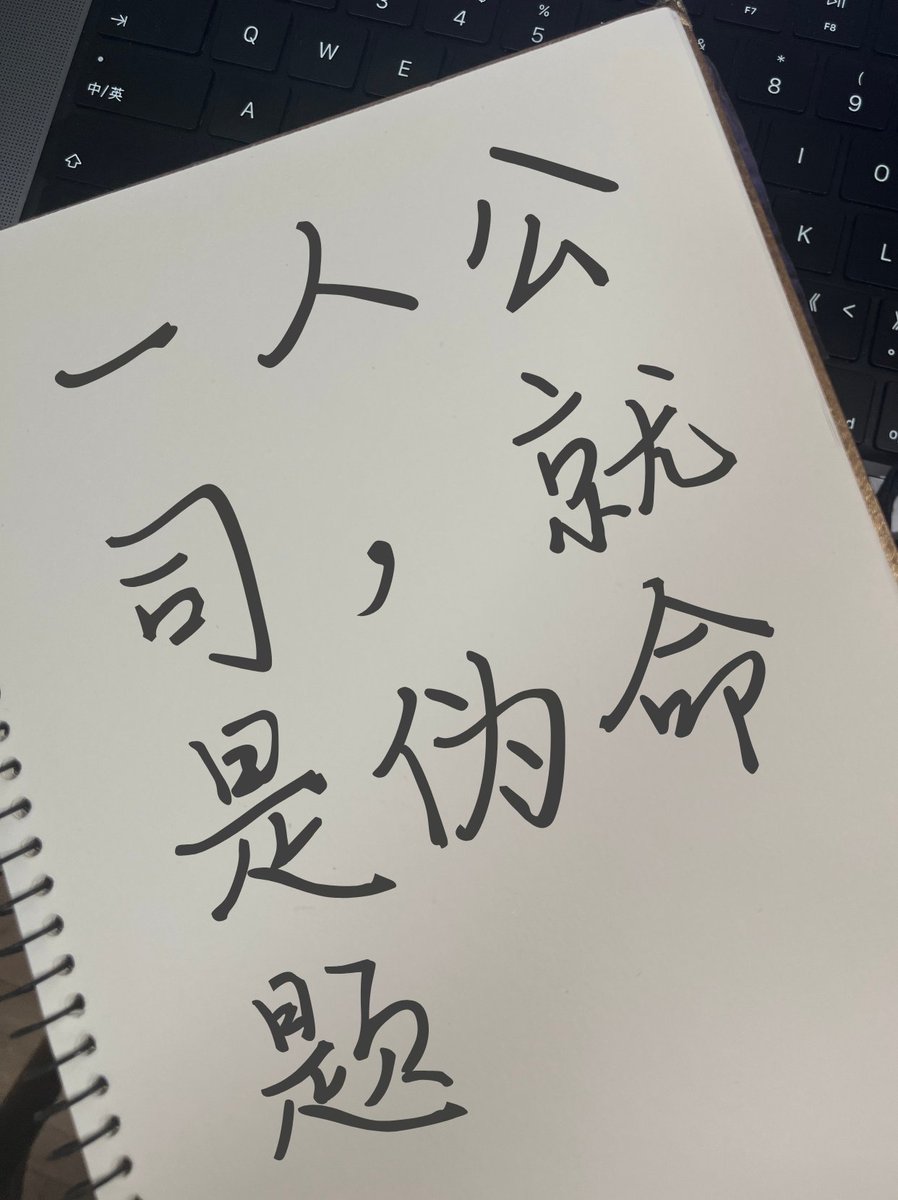 F7 F8
3 4 % 5 & * 8 ( 9
Q W E I O
中/英 A K L
《 <
一人公
司，就
是伪命
题